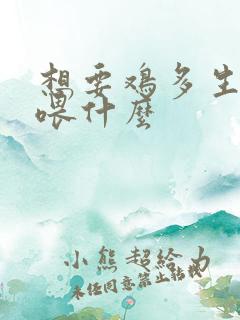 想要鸡多生
喂什麼
小熊超给力
未经同意禁止转载